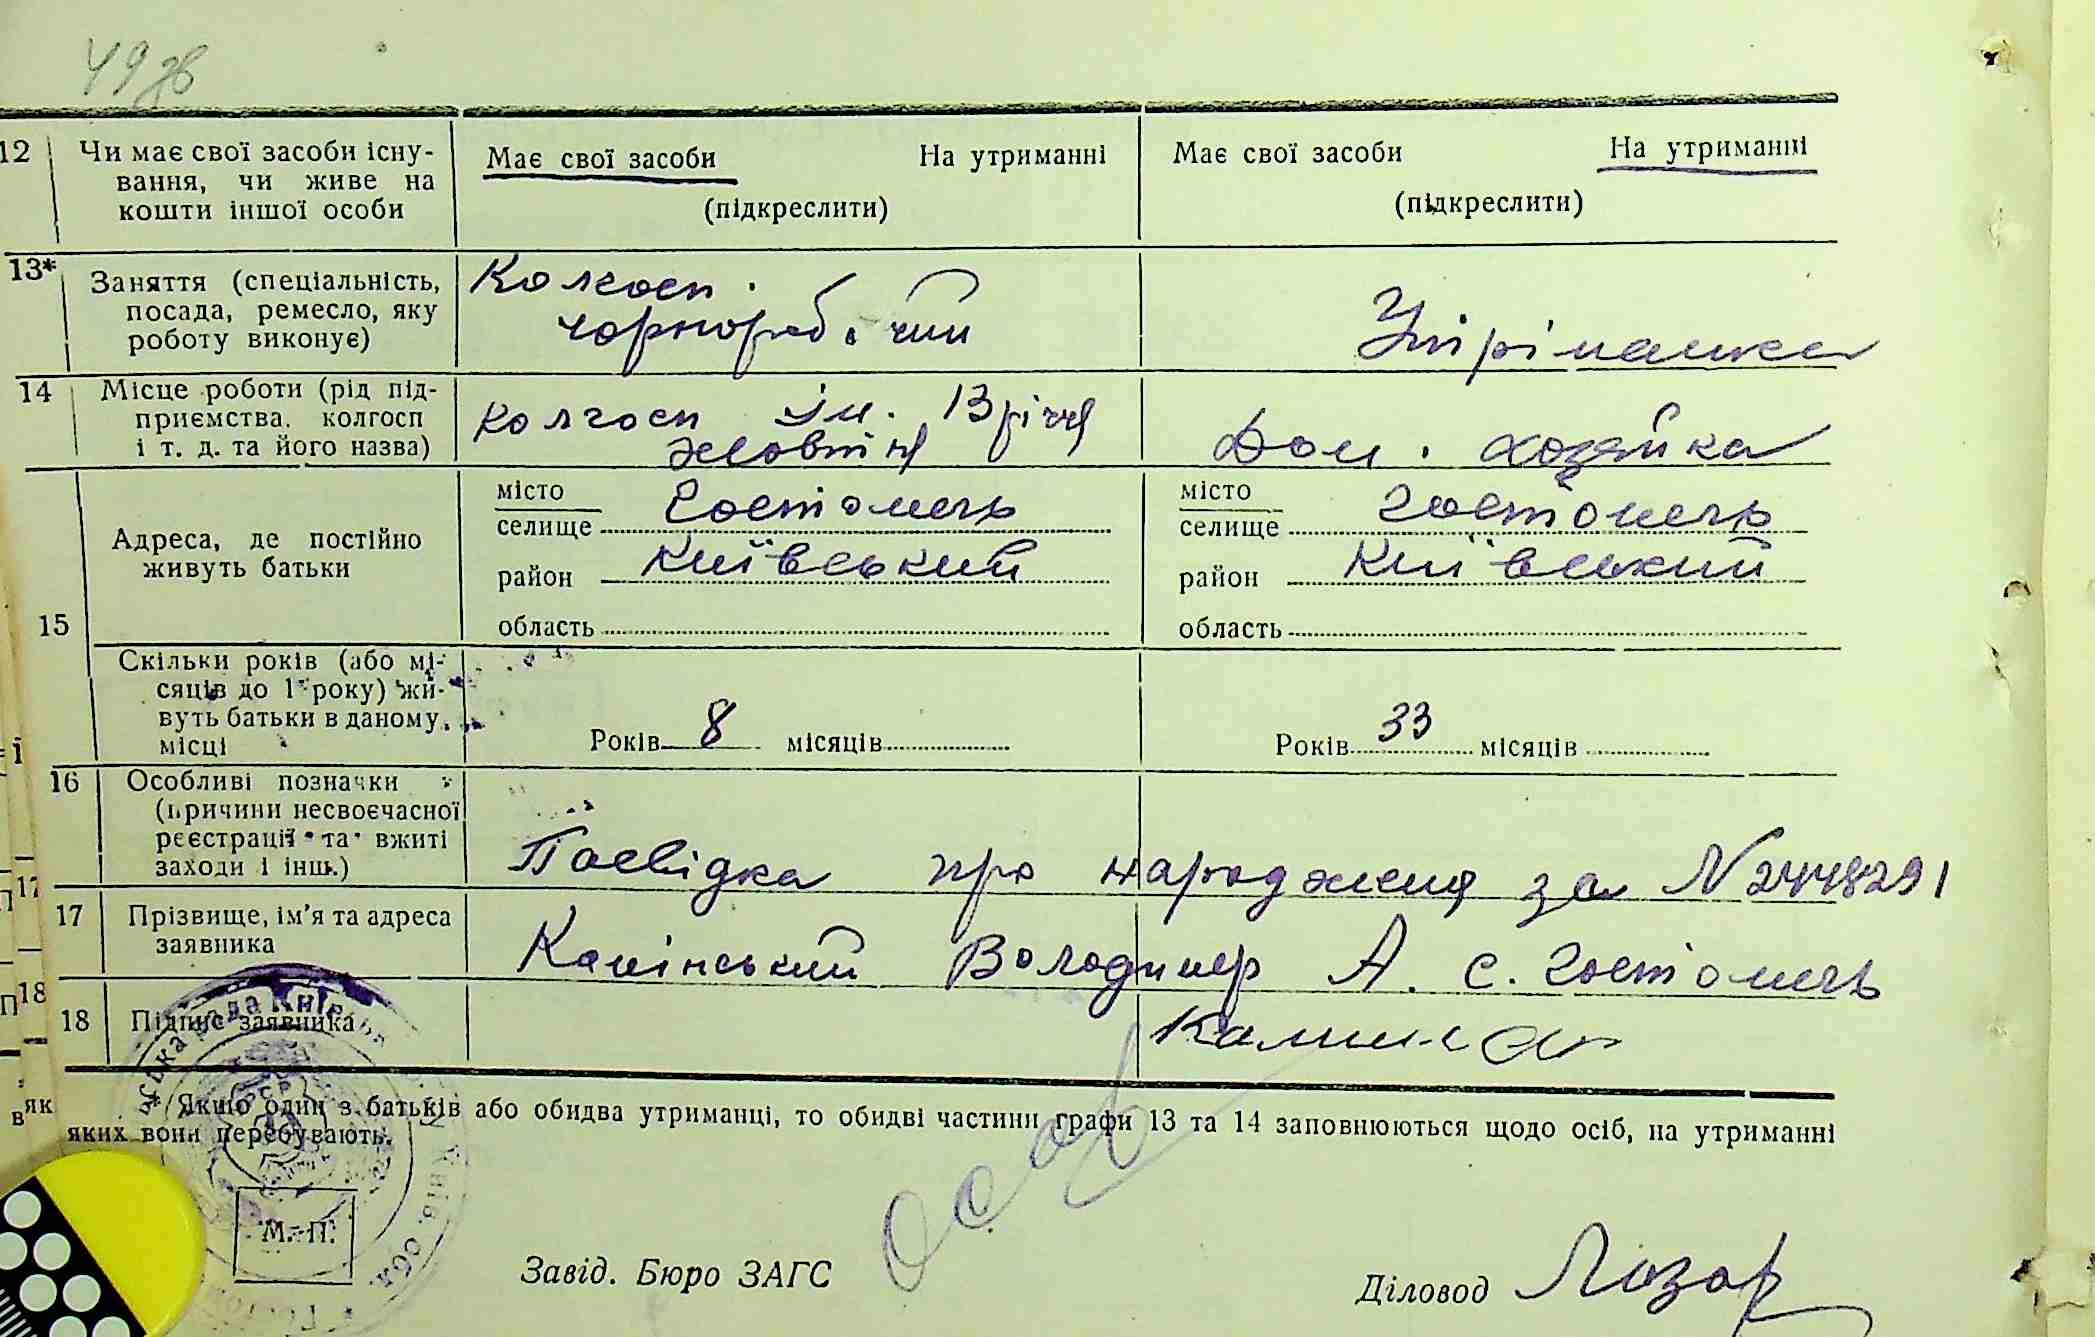 49 зв
12 Чи має свої засоби існу-
вання, чи живе на
кошти іншої особи
Має свої засоби На утриманні
(підкреслити)
Має свої засоби На утриманні
(підкреслити)
13* Заняття (спеціальність,
посада, ремесло, яку
роботу виконує)
Колгосп.
чорнороб.чий
Утріманка
14 Місце роботи (рід під-
приємства, колгосп
і т. д. та його назва)
Колгосп ім. 13 річчя
Жовтня
Дом. хозяйка
15 Адреса, де постійно
живуть батьки
місто
селище Гостомель
район Київський
область
місто
селище Гостомель
район Київський
область
Скільки років (або мі-
сяців до 1 року) жи-
вуть батьки в даному
місці
Років 8 місяців
Років 33 місяців
16 Особливі позначки
(причини несвоєчасної
реєстрації та вжиті
заходи і інш.)
Посвідка про народження за N 2448291
17 Прізвище, ім'я та адреса
заявника
Камінський Володимир А. с. Гостомель
18 Підпис заявника
* Якщо один з батьків або обидва утриманці, то обидві частини графи 13 та 14 заповнюються щодо осіб, на утриманні
яких вони перебувають.
М. П.
Завід. Бюро ЗАГС
Діловод Лозар